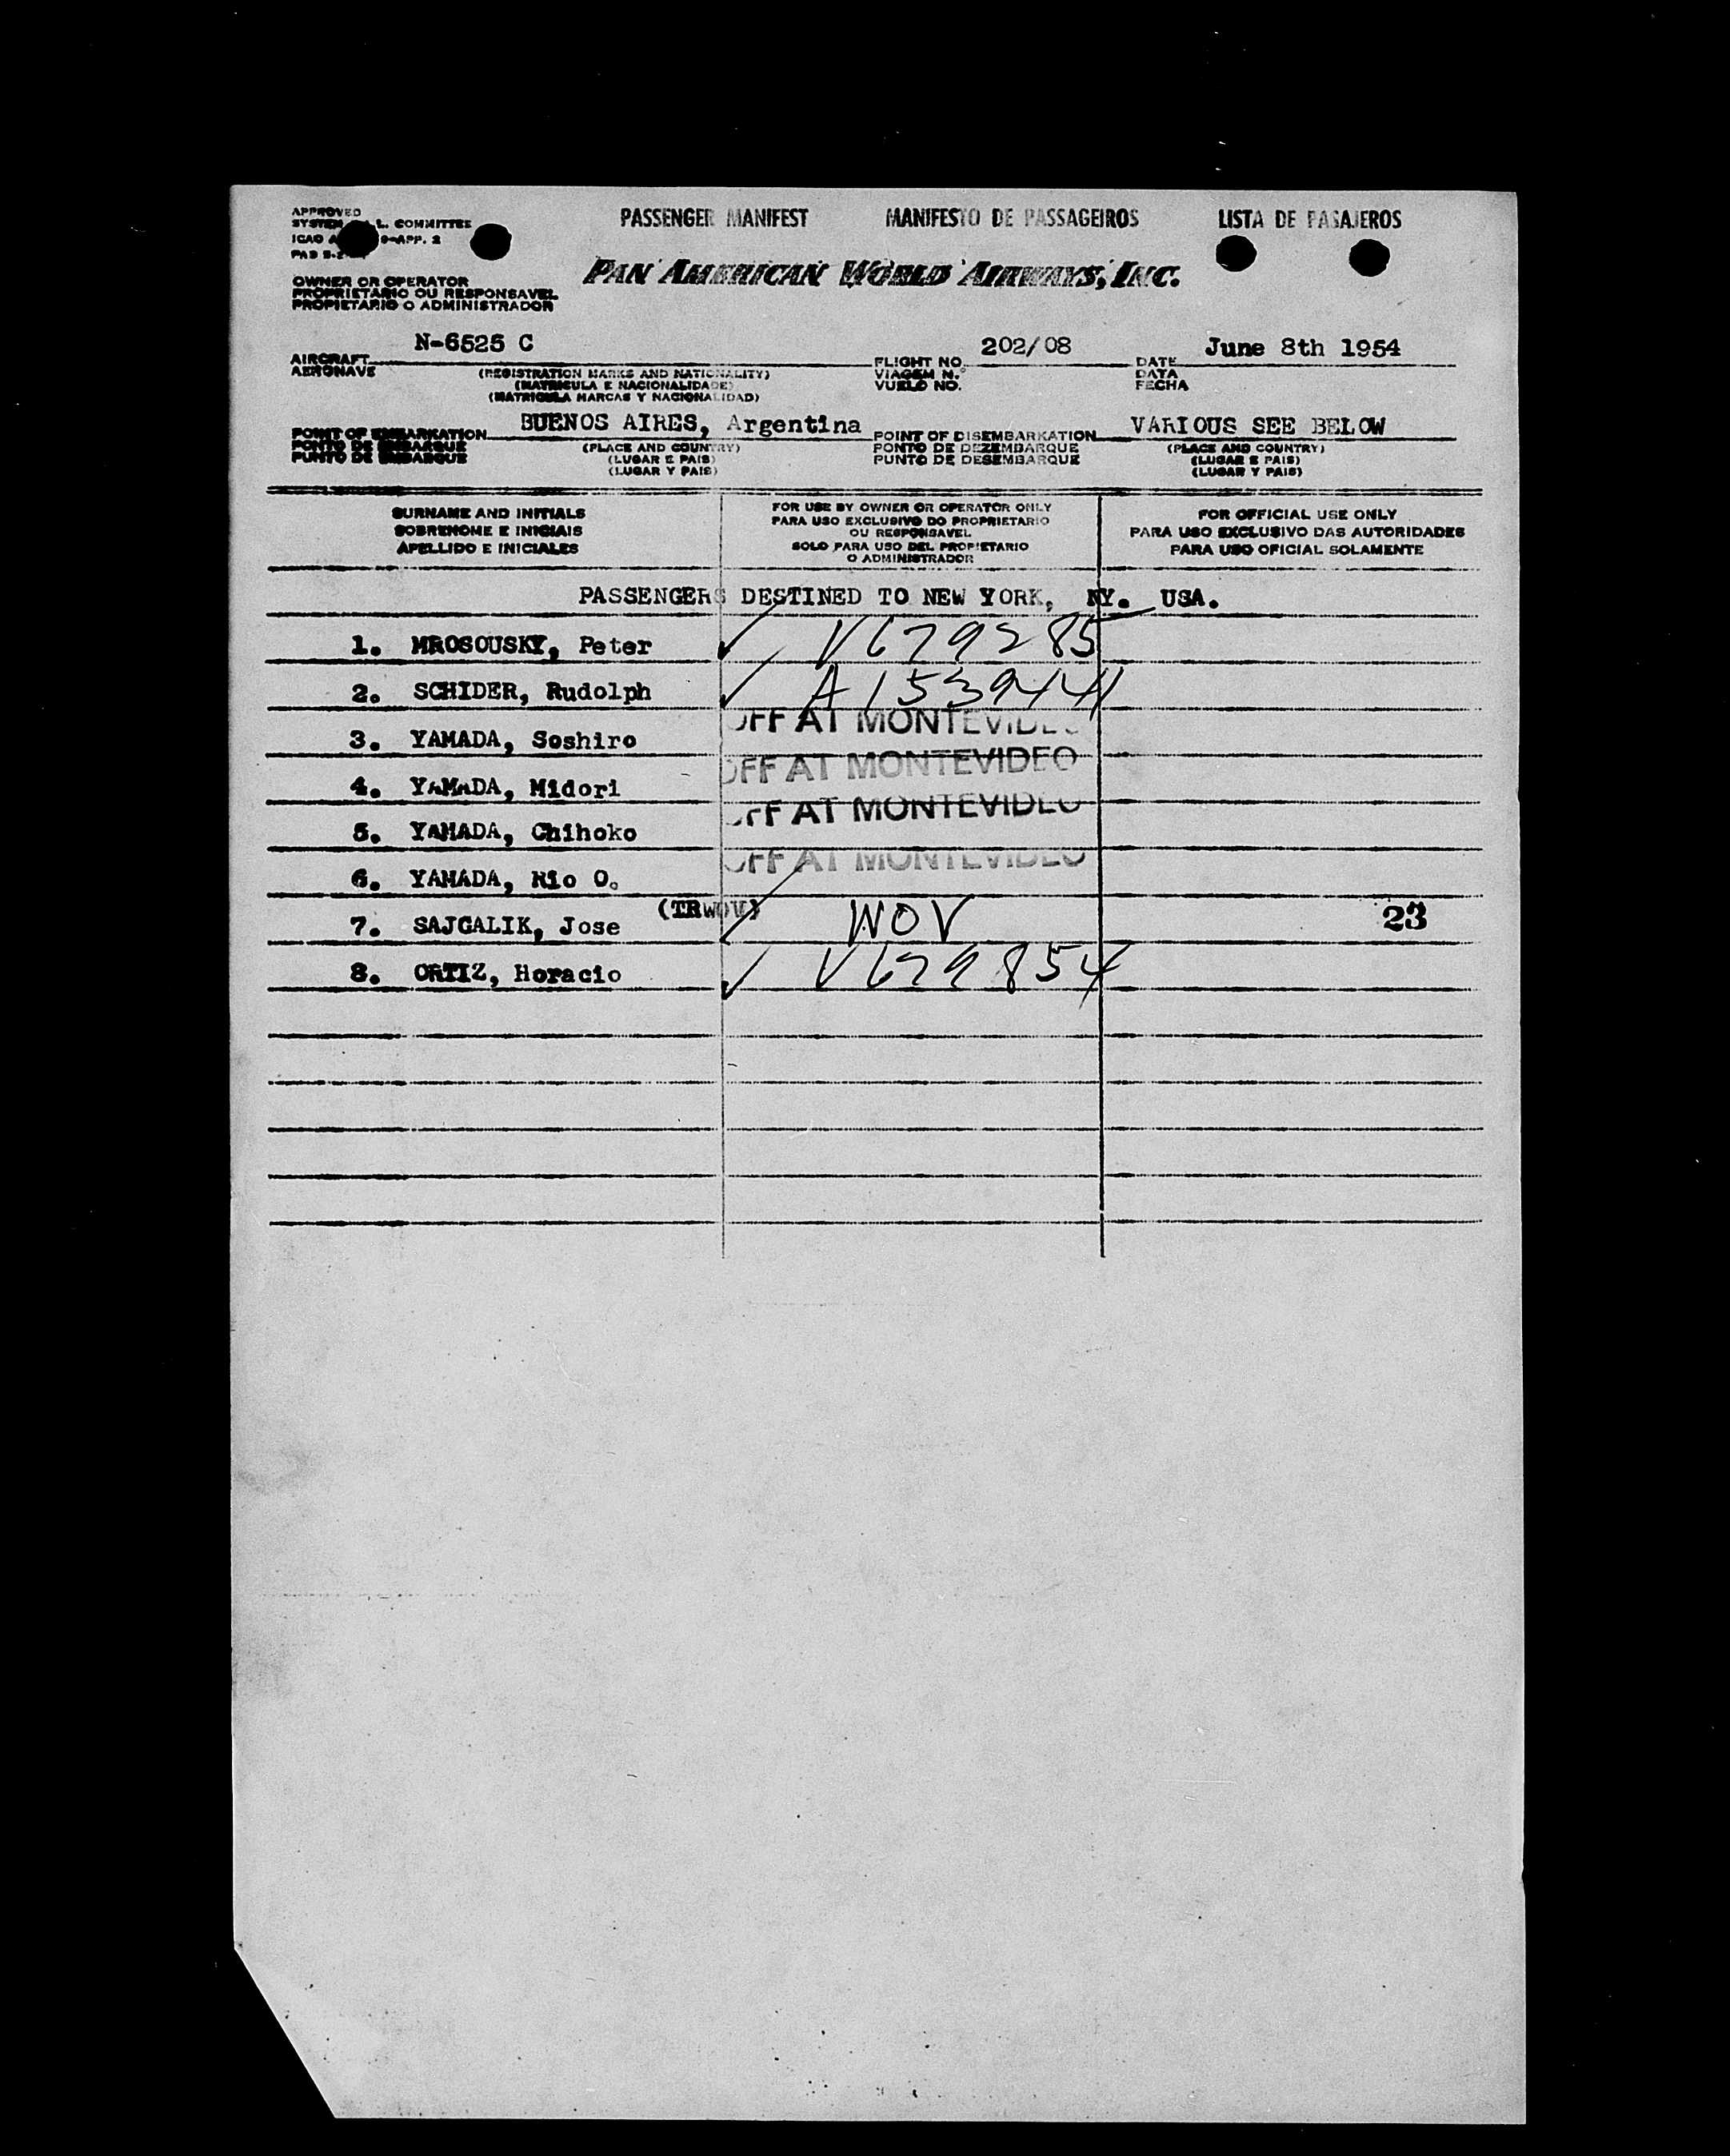 APPROVED PASSENGER MANIFEST MANIFESTO DE PASSAGEIROS LISTA DE PASAJEROS
SYSTEM L. COMMITTEE
ICAO 9-APP. 2
PAN AMERICAN WORLD AIRWAYS, INC.
OWNER OR OPERATOR
PROPRIETARIO OU RESPONSAVEL
PROPIETARIO O ADMINISTRADOR
N-6525 C 202/08 June 8th 1954
AIRCRAFT FLIGHT NO. DATE
AERONAVE (REGISTRATION MARKS AND NATIONALITY) VIAGEM N.º DATA
(MATRICULA E NACIONALIDADE) VUELO NO. FECHA
(MATRICULA MARCAS Y NACIONALIDAD)
BUENOS AIRES, Argentina VARIOUS SEE BELOW
POINT OF EMBARKATION POINT OF DISEMBARKATION
PONTO DE EMBARQUE (PLACE AND COUNTRY) PONTO DE DEZEMBARQUE (PLACE AND COUNTRY)
PUNTO DE EMBARQUE (LUGAR E PAIS) PUNTO DE DESEMBARQUE (LUGAR E PAIS)
(LUGAR Y PAIS) (LUGAR Y PAIS)
SURNAME AND INITIALS FOR USE BY OWNER OR OPERATOR ONLY FOR OFFICIAL USE ONLY
SOBRENOME E INICIAIS PARA USO EXCLUSIVO DO PROPRIETARIO PARA USO EXCLUSIVO DAS AUTORIDADES
OU RESPONSAVEL
APELLIDO E INICIALES SOLO PARA USO DEL PROPIETARIO PARA USO OFICIAL SOLAMENTE
O ADMINISTRADOR
PASSENGERS DESTINED TO NEW YORK, NY. USA.
1. MROSOUSKY, Peter ✓ V679285
2. SCHIDER, Rudolph ✓ A1539441
OFF AT MONTEVIDEO
3. YAMADA, Soshiro
OFF AT MONTEVIDEO
4. YAMADA, Midori
OFF AT MONTEVIDEO
5. YAMADA, Chihoko
OFF AT MONTEVIDEO
6. YAMADA, Rio O.
(TRWOV)
7. SAJGALIK, Jose ✓ WOV 23
8. ORTIZ, Horacio ✓ V679854